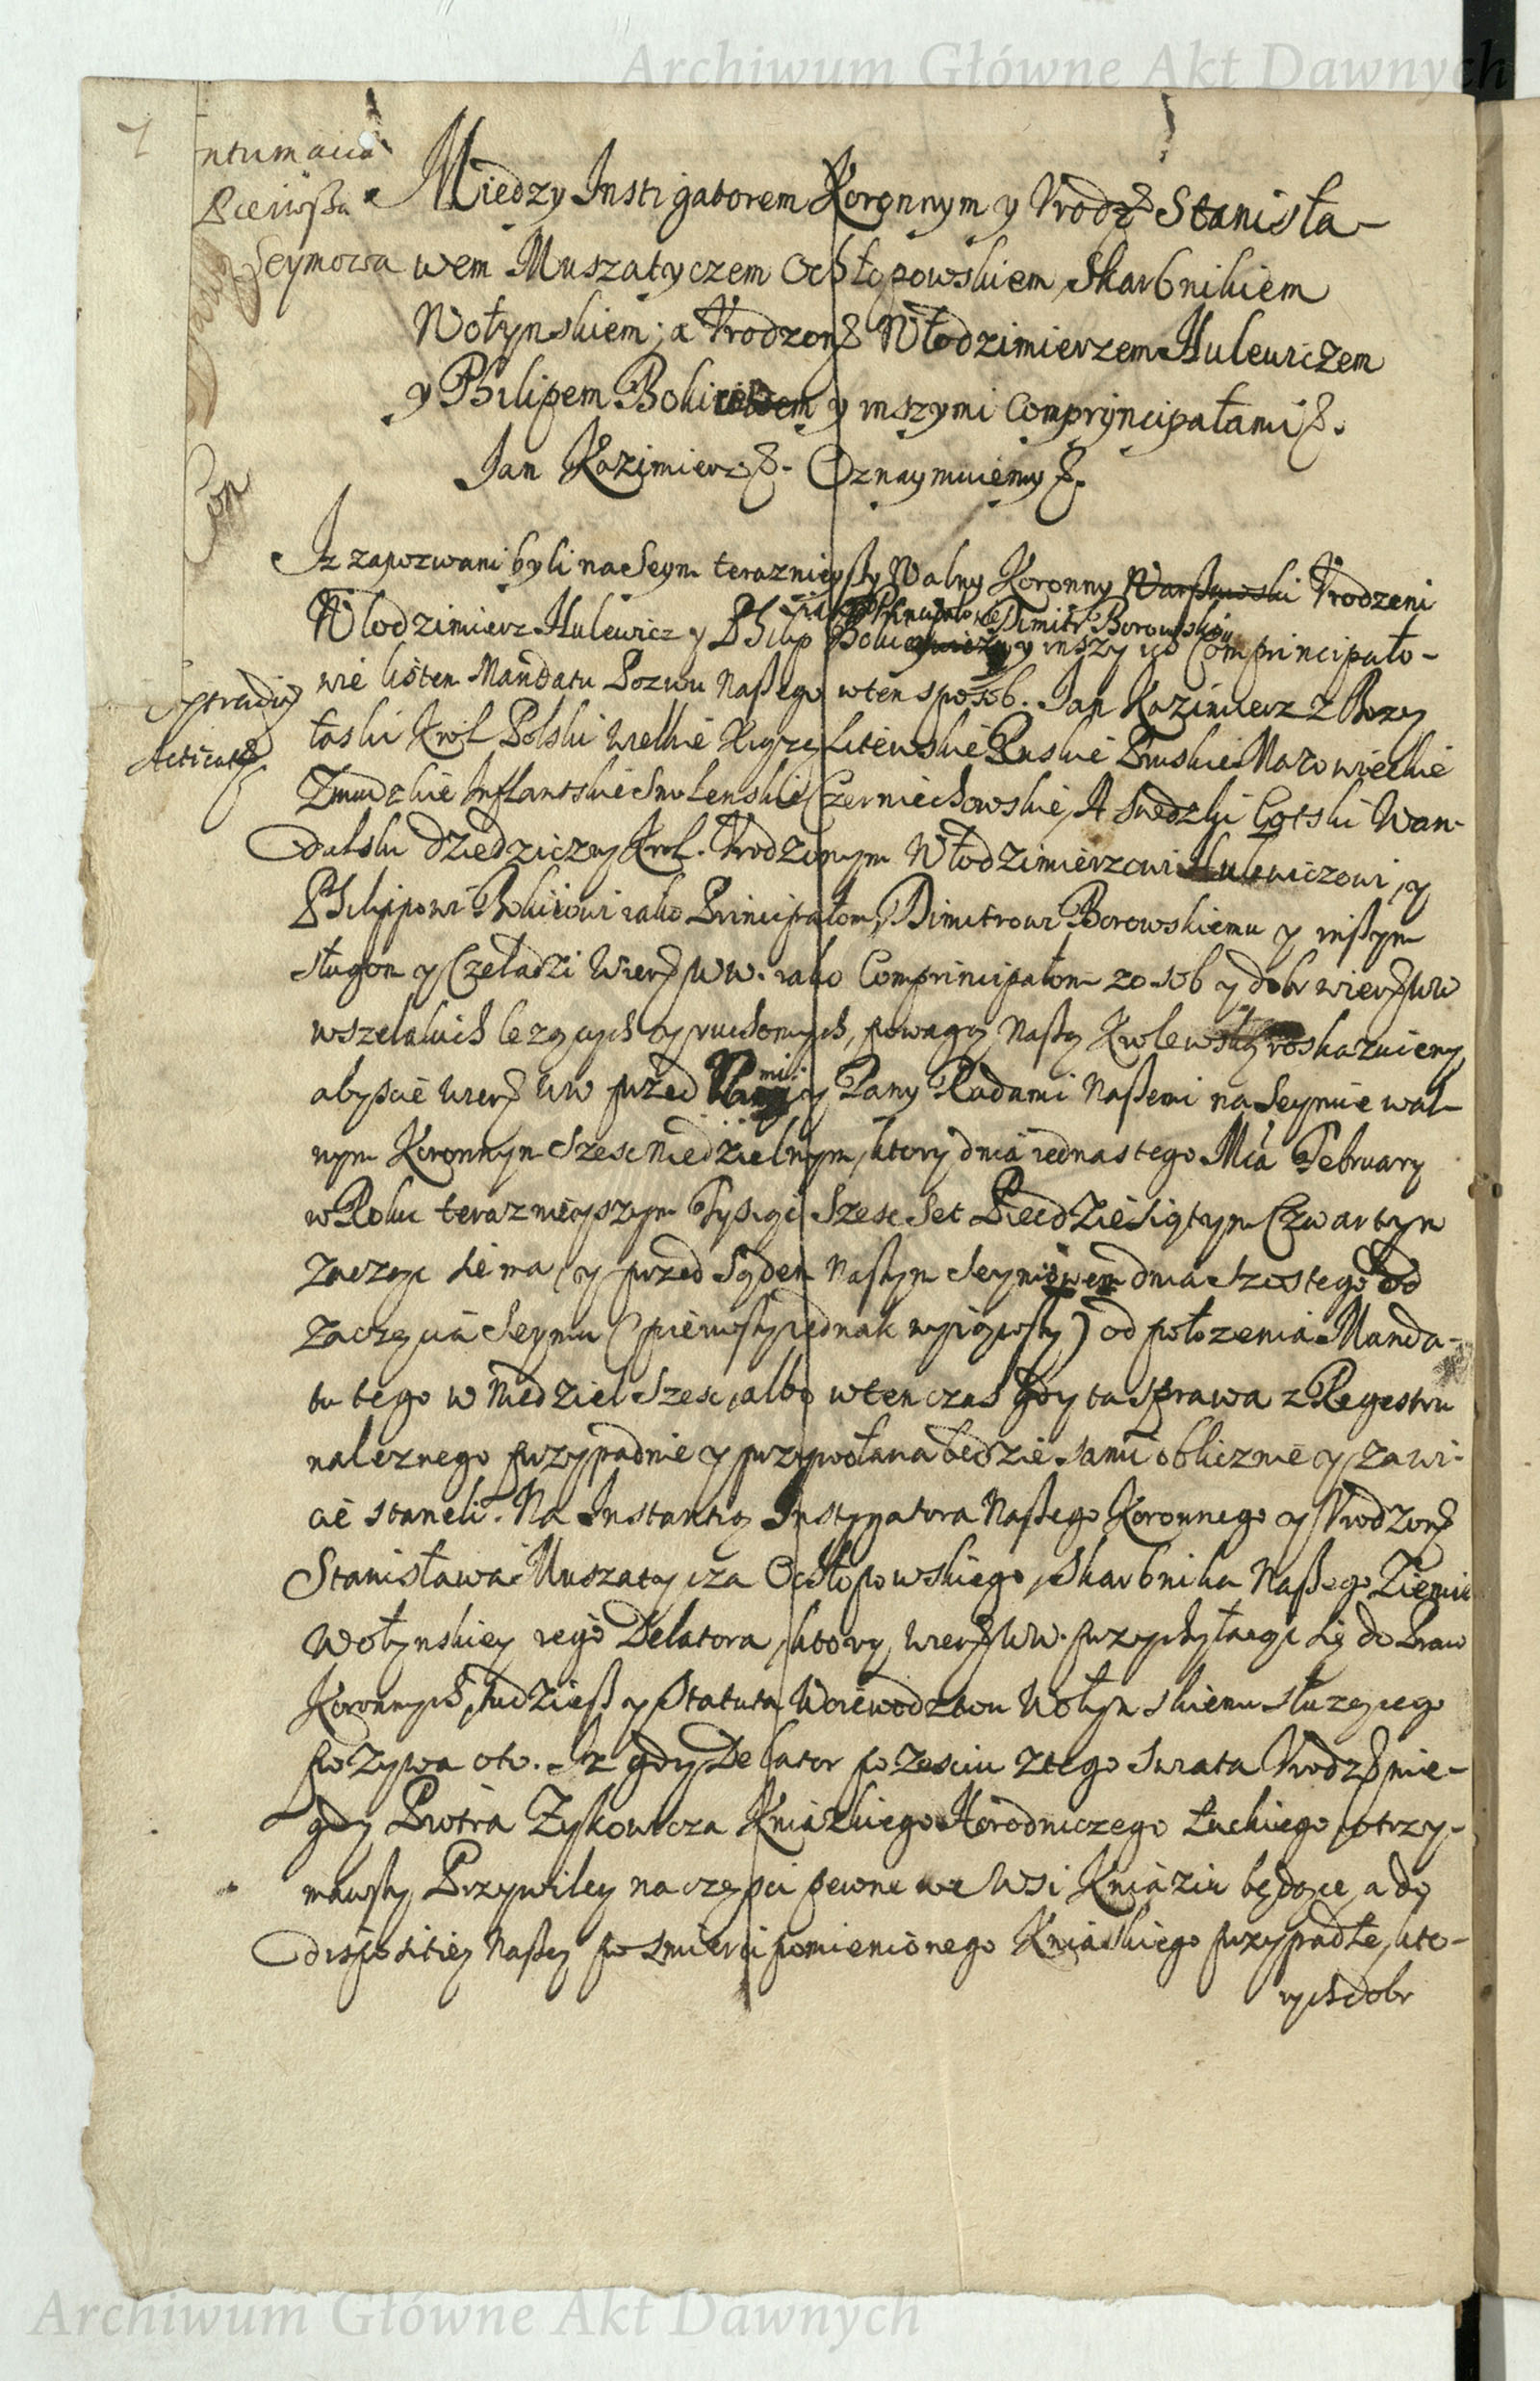 Archiwum Główne Akt Dawnych
ntumacia
Pierwsza
Seymowa
Con
Miedzy Instigatorem Koronnym y Vrodz Stanisła-
wem Muszatyczem Ochłopowskiem Skarbnikiem
Wołynskiem; a Vrodzon Włodzimierzem Hulewiczem
y Philipem Bokiiem y inszymi Compryncipałami &.
Jan Kazimierz &. Oznaymuiemy &.
Iz zapozwani byli na Seym teraznieyszy Walny Koronny Warszawski Vrodzeni
iako Principałowie Dimitr Borowski
Wlodzimierz Hulewicz y Philip Bokii y inszy ich Comprincipało-
wie listem Mandatu Pozwu Naßego wten sposob. Jan Kazimierz z Bozey
Acticat
łaski Krol Polski Wielkie Xiąże Litewskie Ruskie Pruskie Mazowieckie
Zmudzkie Inflantskie Smolenskie Czerniechowskie, A Swedzki Gotski Wan-
dalski dziedziczny Krol. Vrodzonym Włodzimierzowi Hulewiczowi, y
Philippowi Bokiiowi iako Principałom, Dimitrowi Borowskiemu y inßym
sługom y Czeladzi Wier ww. iako Comprincipałom z osob y dobr wier ww
wszelakich lezących y ruchomych, powagą Naßą Krolewską roskazuiemy
abyscie wier ww przed Nami y Pany Radami Naßemi na Seymie wal-
nym Koronnym Szesc Niedzielnym, ktory dnia iednastego Mca February
w Roku teraznieyszym Tysiąc Szesc Set Piecdziesiątym Czwartym
zacząc sie ma, y przed Sądem Naßym Seymowem dnia szostego od
zaczęcia Seymu (pierwszy iednak wyiąwszy) od połozenia Manda-
tu tego w Niedziel Szesc, albo wten czas gdy ta sprawa z Regestru
naleznego przypadnie y przywołana bedzie sami oblicznie y zawi-
cie staneli. Na Instantią Instygatora Naßego Koronnego y Vrodzon
Stanisława Muszatycza Ochłopowskiego, Skarbnika Naßego Ziemie
Wołynskiey iego Delatora, ktory wier ww. przychylaiąc się do Praw
Koronnych, tudzieß y Statutu Woiewodztwu Wołynskiemu słuzącego
pozywa oto. Iz gdy Delator po zesciu z tego swiata Vrodz nie-
gdy Piotra Zykowicza Kniazkiego Horodniczego Łuckiego, otrzy-
mawszy Przywiley na częsci pewne we Wsi Kniazie będące, a do
dispositiey Naßey po smierci pomienionego Kniaskiego przypadłe, kto-
rych dobr
Archiwum Główne Akt Dawnych